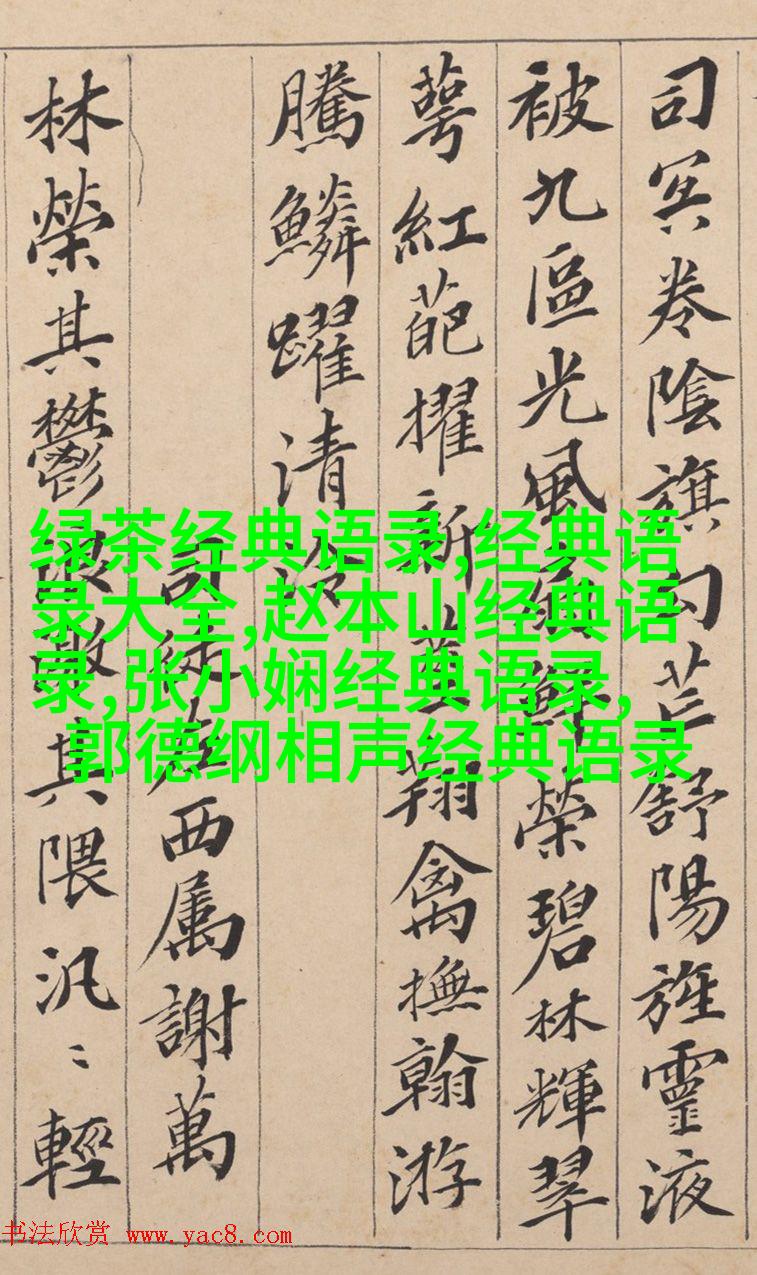 司冥卷陰旗勾芒舒陽旌靈液
被九區光風扇鮮榮碧林輝翠
萼紅葩擢新莖翔禽撫翰游
騰鱗躍清泠
司徒左西属謝萬
林榮其鬱浪激其隈汎〻輕
绿茶经典语录,经典语
录大全,赵本山经典语
录,张小娴经典语录,
郭德纲相声经典语录
书法欣赏 www.yac8.com